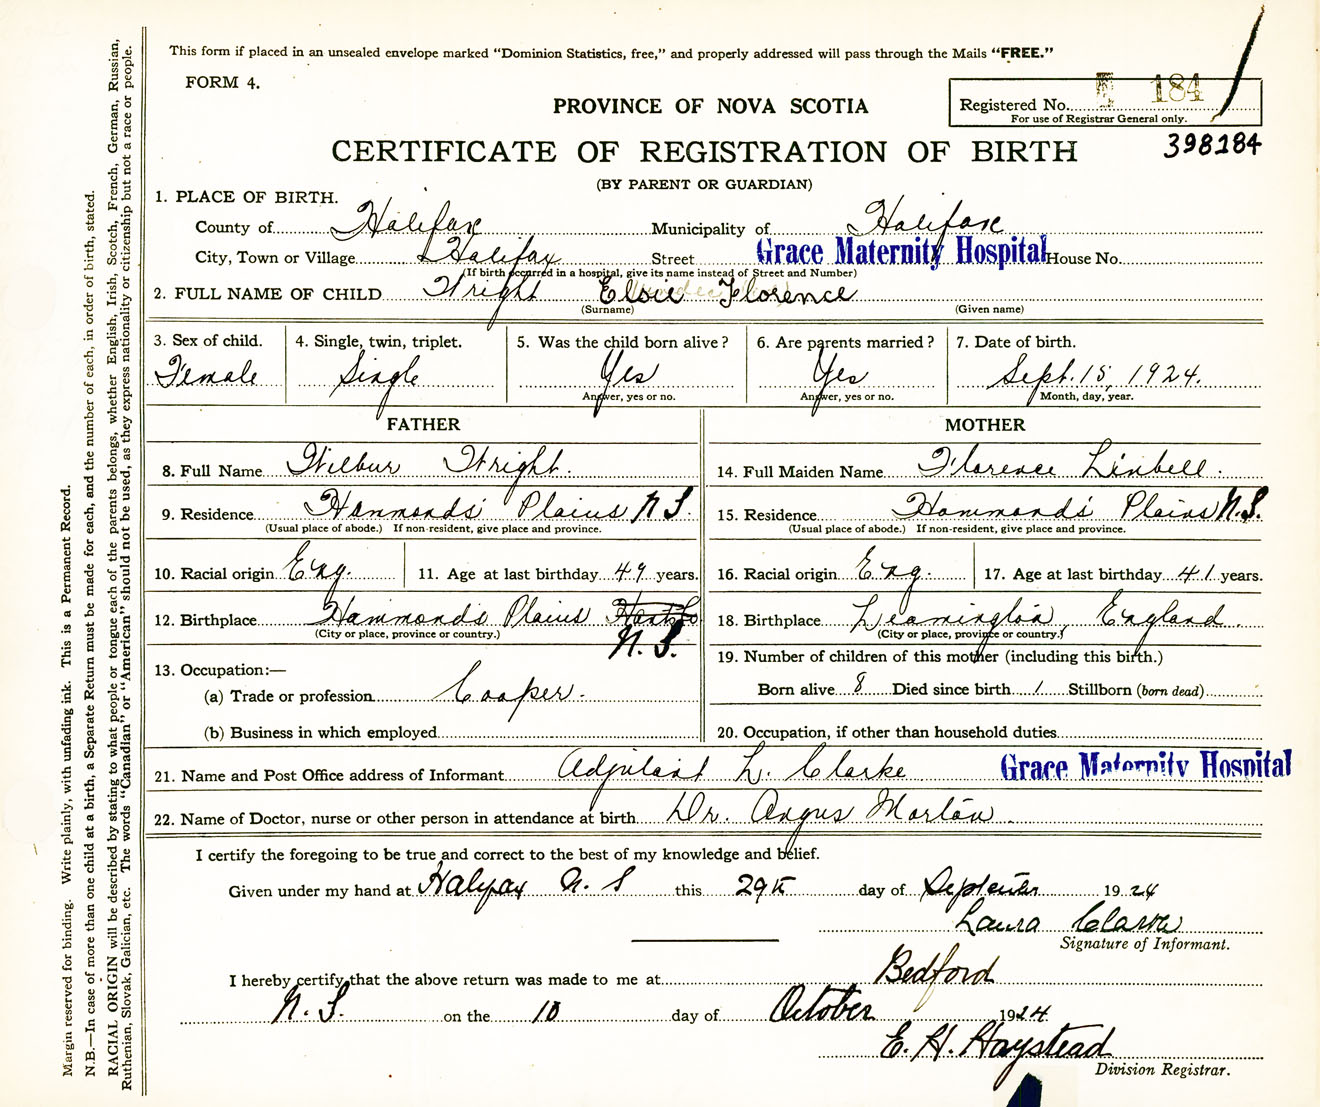 This form if placed in an unsealed envelope marked “Dominion Statistics, free,” and properly addressed will pass through the Mails “FREE.”
FORM 4.
PROVINCE OF NOVA SCOTIA
Registered No. 184
For use of Registrar General only.
398184
CERTIFICATE OF REGISTRATION OF BIRTH
(BY PARENT OR GUARDIAN)
1. PLACE OF BIRTH.
County of Halifax Municipality of Halifax
City, Town or Village Halifax Street Grace Maternity Hospital House No.
(If birth occurred in a hospital, give its name instead of Street and Number)
2. FULL NAME OF CHILD Wright Elsie Florence
(Surname) (Given name)
3. Sex of child. 4. Single, twin, triplet. 5. Was the child born alive? 6. Are parents married? 7. Date of birth.
Female Single Yes Yes Sept. 15, 1924.
Answer, yes or no. Answer, yes or no. Month, day, year.
FATHER MOTHER
8. Full Name Wilbur Wright. 14. Full Maiden Name Florence Linbell.
9. Residence Hammonds Plains N S. 15. Residence Hammonds Plains N.S.
(Usual place of abode.) If non-resident, give place and province. (Usual place of abode.) If non-resident, give place and province.
10. Racial origin Eng. 11. Age at last birthday 49 years. 16. Racial origin Eng. 17. Age at last birthday 41 years.
12. Birthplace Hammonds Plains 18. Birthplace Leamington, England.
(City or place, province or country.) N.S. (City or place, province or country.)
13. Occupation:— 19. Number of children of this mother (including this birth.)
(a) Trade or profession Cooper. Born alive 8 Died since birth 1 Stillborn (born dead)
(b) Business in which employed 20. Occupation, if other than household duties
21. Name and Post Office address of Informant Adjutant L. Clarke Grace Maternity Hospital
22. Name of Doctor, nurse or other person in attendance at birth Dr. Angus Morton.
I certify the foregoing to be true and correct to the best of my knowledge and belief.
Given under my hand at Halifax N. S this 29th day of September 1924
Laura Clarke
Signature of Informant.
I hereby certify that the above return was made to me at Bedford
N. S. on the 10 day of October 1924
E. H. Haystead
Division Registrar.
Margin reserved for binding. Write plainly, with unfading ink. This is a Permanent Record.
N.B.—In case of more than one child at a birth, a Separate Return must be made for each, and the number of each, in order of birth, stated.
RACIAL ORIGIN will be described by stating to what people or tongue each of the parents belongs, whether English, Irish, Scotch, French, German, Russian,
Ruthenian, Slovak, Galician, etc. The words “Canadian” or “American” should not be used, as they express nationality or citizenship but not a race or people.